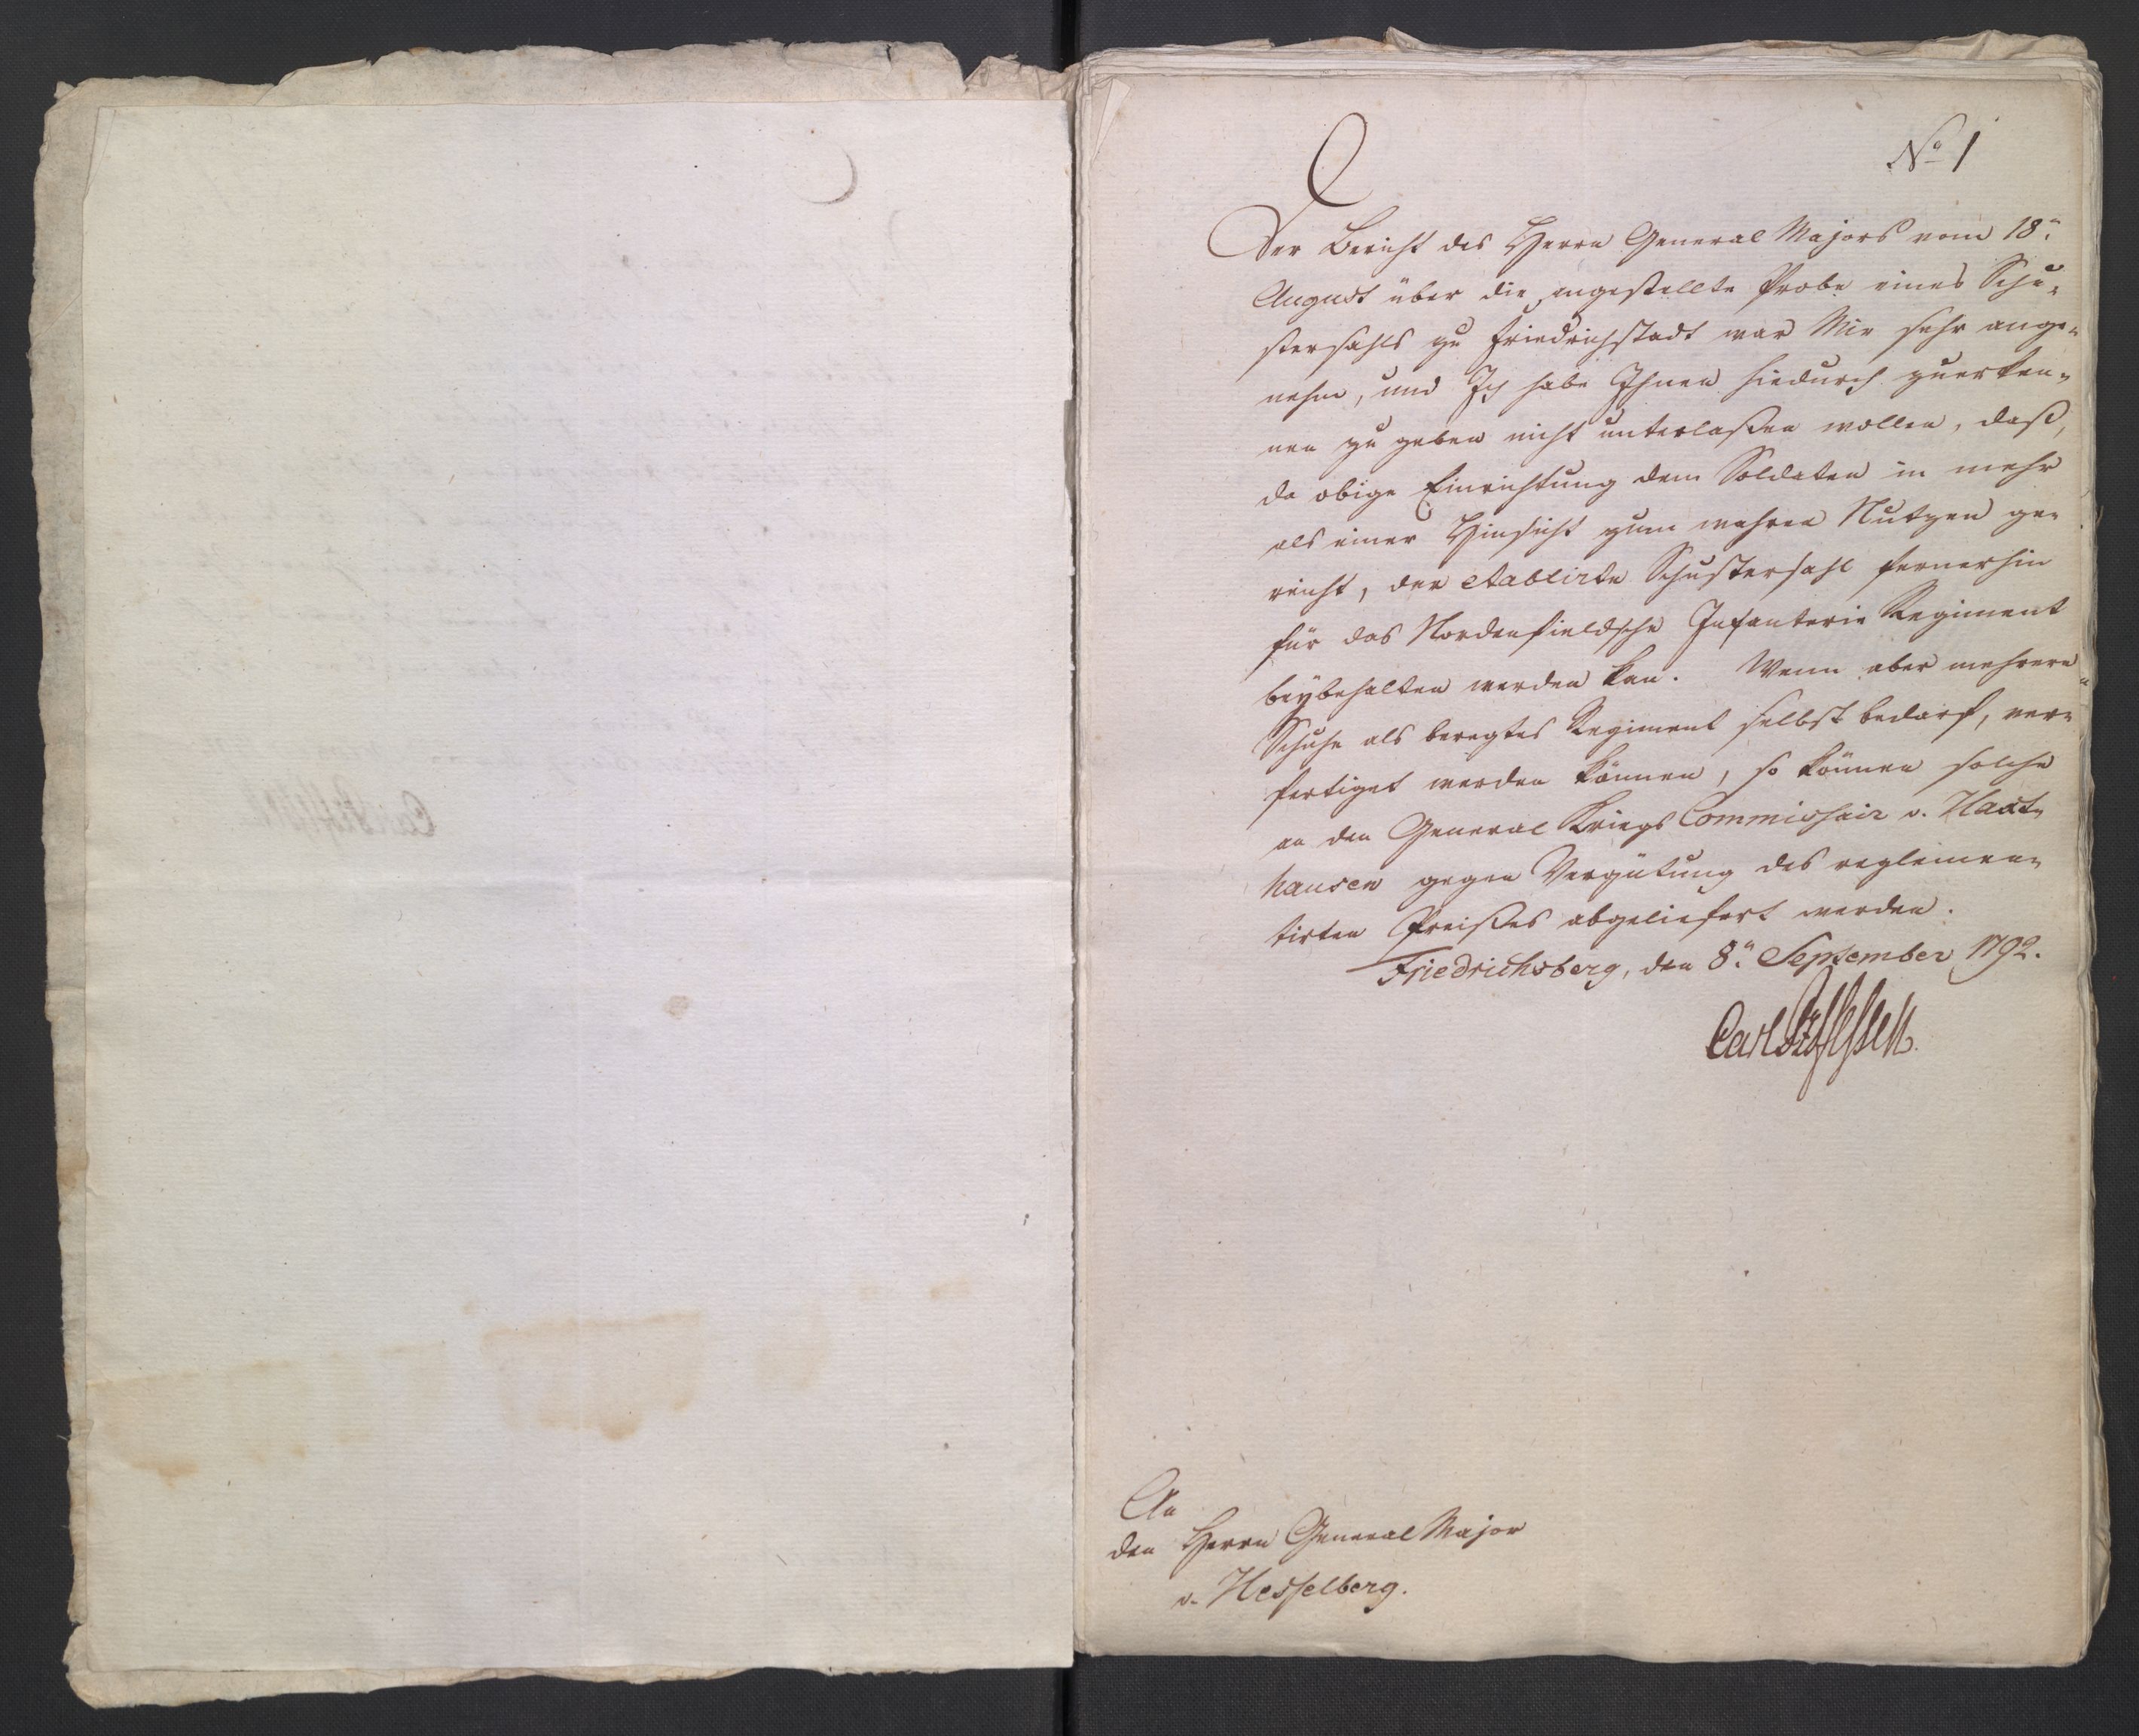 No 1
Der Bericht des Herrn General Majors vom 18ten
August über die angestellte Probe eines Schu-
stersahls zu Friedrichstadt war Mir sehr ange-
nehm, und Ich habe Ihnen hiedurch zuerken-
nen zu geben nicht unterlaßen wollen, daß,
da obige Einrichtung dem Soldaten in mehr
als einer Hinsicht zum wahren Nutzen ge-
reicht, der etablirte Schustersahl fernerhin
für das Nordenfieldsche Infanterie Regiment
beybehalten werden kan. Wenn aber mehrere
Schuhe als beregtes Regiment selbst bedarf, ver-
fertiget werden können, so können solche
an den General Kriegs Commissair v. Haxt-
hausen gegen Vergütung des reglemen-
tirten Preißes abgeliefert werden.
Friedrichsberg, den 8ten September 1792.
Carl Pz Hessen
An
den Herrn General Major
v. Hesselberg.